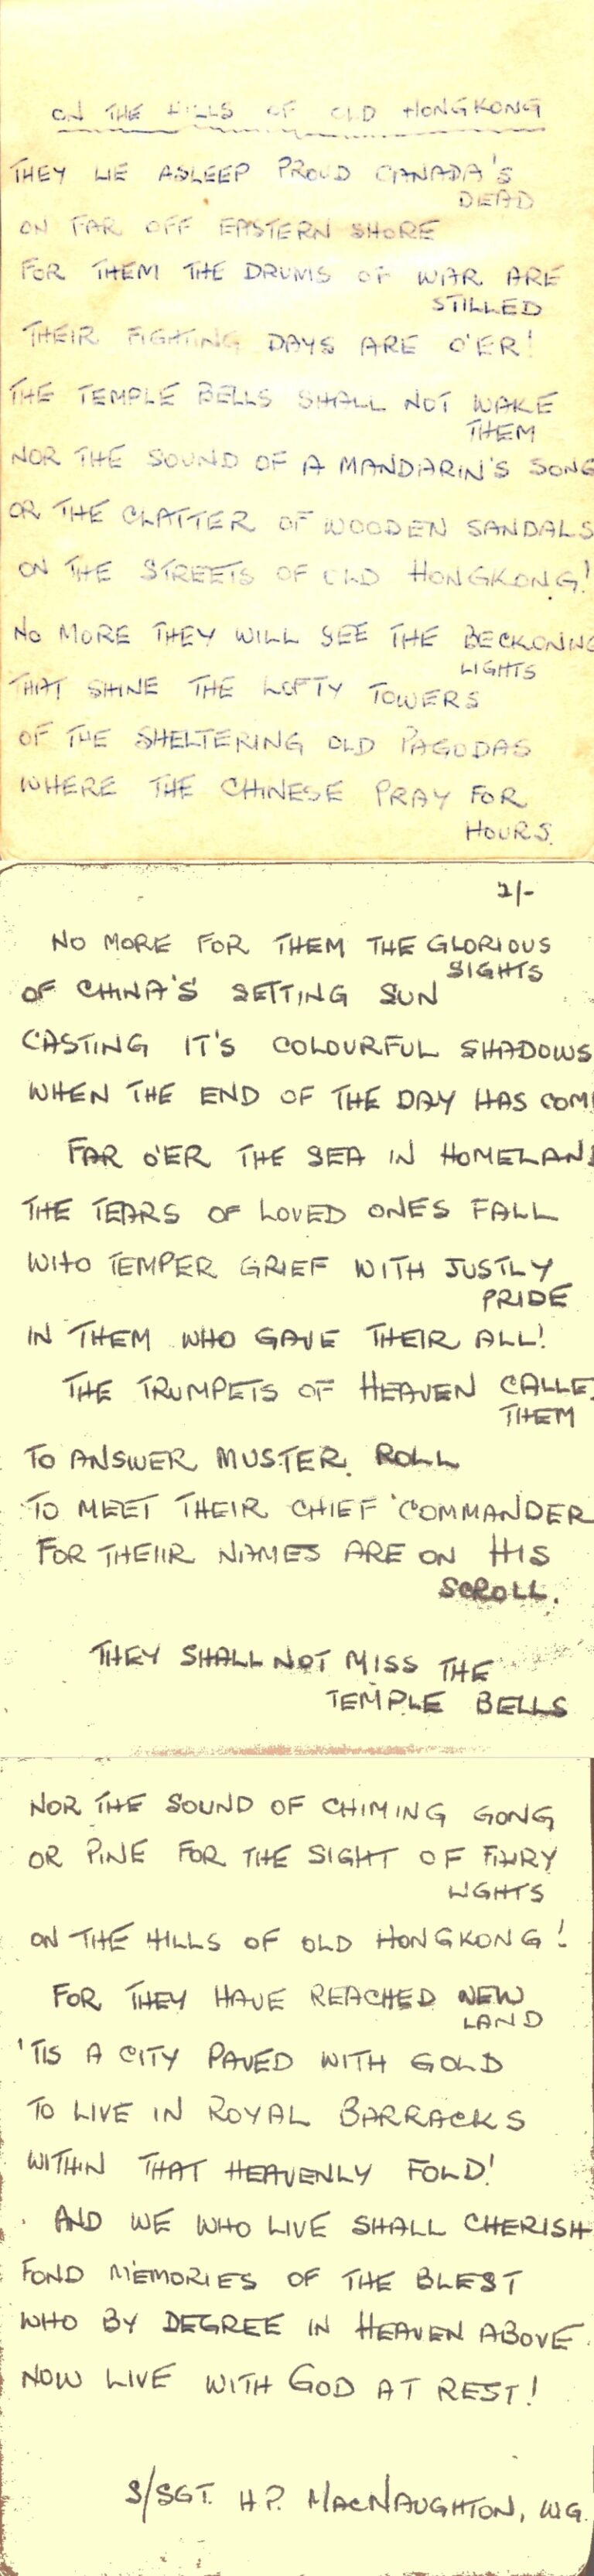 ON THE HILLS OF OLD HONGKONG
THEY LIE ASLEEP PROUD CANADA'S
DEAD
ON FAR OFF EASTERN SHORE
FOR THEM THE DRUMS OF WAR ARE
STILLED
THEIR FIGHTING DAYS ARE O'ER!
THE TEMPLE BELLS SHALL NOT WAKE
THEM
NOR THE SOUND OF A MANDARIN'S SONG
OR THE CLATTER OF WOODEN SANDALS
ON THE STREETS OF OLD HONGKONG!
NO MORE THEY WILL SEE THE BECKONING
LIGHTS
THAT SHINE THE LOFTY TOWERS
OF THE SHELTERING OLD PAGODAS
WHERE THE CHINESE PRAY FOR
HOURS.
2/-
NO MORE FOR THEM THE GLORIOUS
SIGHTS
OF CHINA'S SETTING SUN
CASTING IT'S COLOURFUL SHADOWS
WHEN THE END OF THE DAY HAS COM
FAR O'ER THE SEA IN HOMELAND
THE TEARS OF LOVED ONES FALL
WHO TEMPER GRIEF WITH JUSTLY
PRIDE
IN THEM WHO GAVE THEIR ALL!
THE TRUMPETS OF HEAVEN CALLE
THEM
TO ANSWER MUSTER ROLL
TO MEET THEIR CHIEF COMMANDER
FOR THEIR NAMES ARE ON HIS
SCROLL.
THEY SHALL NOT MISS THE
TEMPLE BELLS
NOR THE SOUND OF CHIMING GONG
OR PINE FOR THE SIGHT OF FIHRY
LIGHTS
ON THE HILLS OF OLD HONGKONG!
FOR THEY HAVE REACHED NEW
LAND
'TIS A CITY PAVED WITH GOLD
TO LIVE IN ROYAL BARRACKS
WITHIN THAT HEAVENLY FOLD!
AND WE WHO LIVE SHALL CHERISH
FOND MEMORIES OF THE BLEST
WHO BY DEGREE IN HEAVEN ABOVE
NOW LIVE WITH GOD AT REST!
S/SGT. H.P. MACNAUGHTON, W.G.